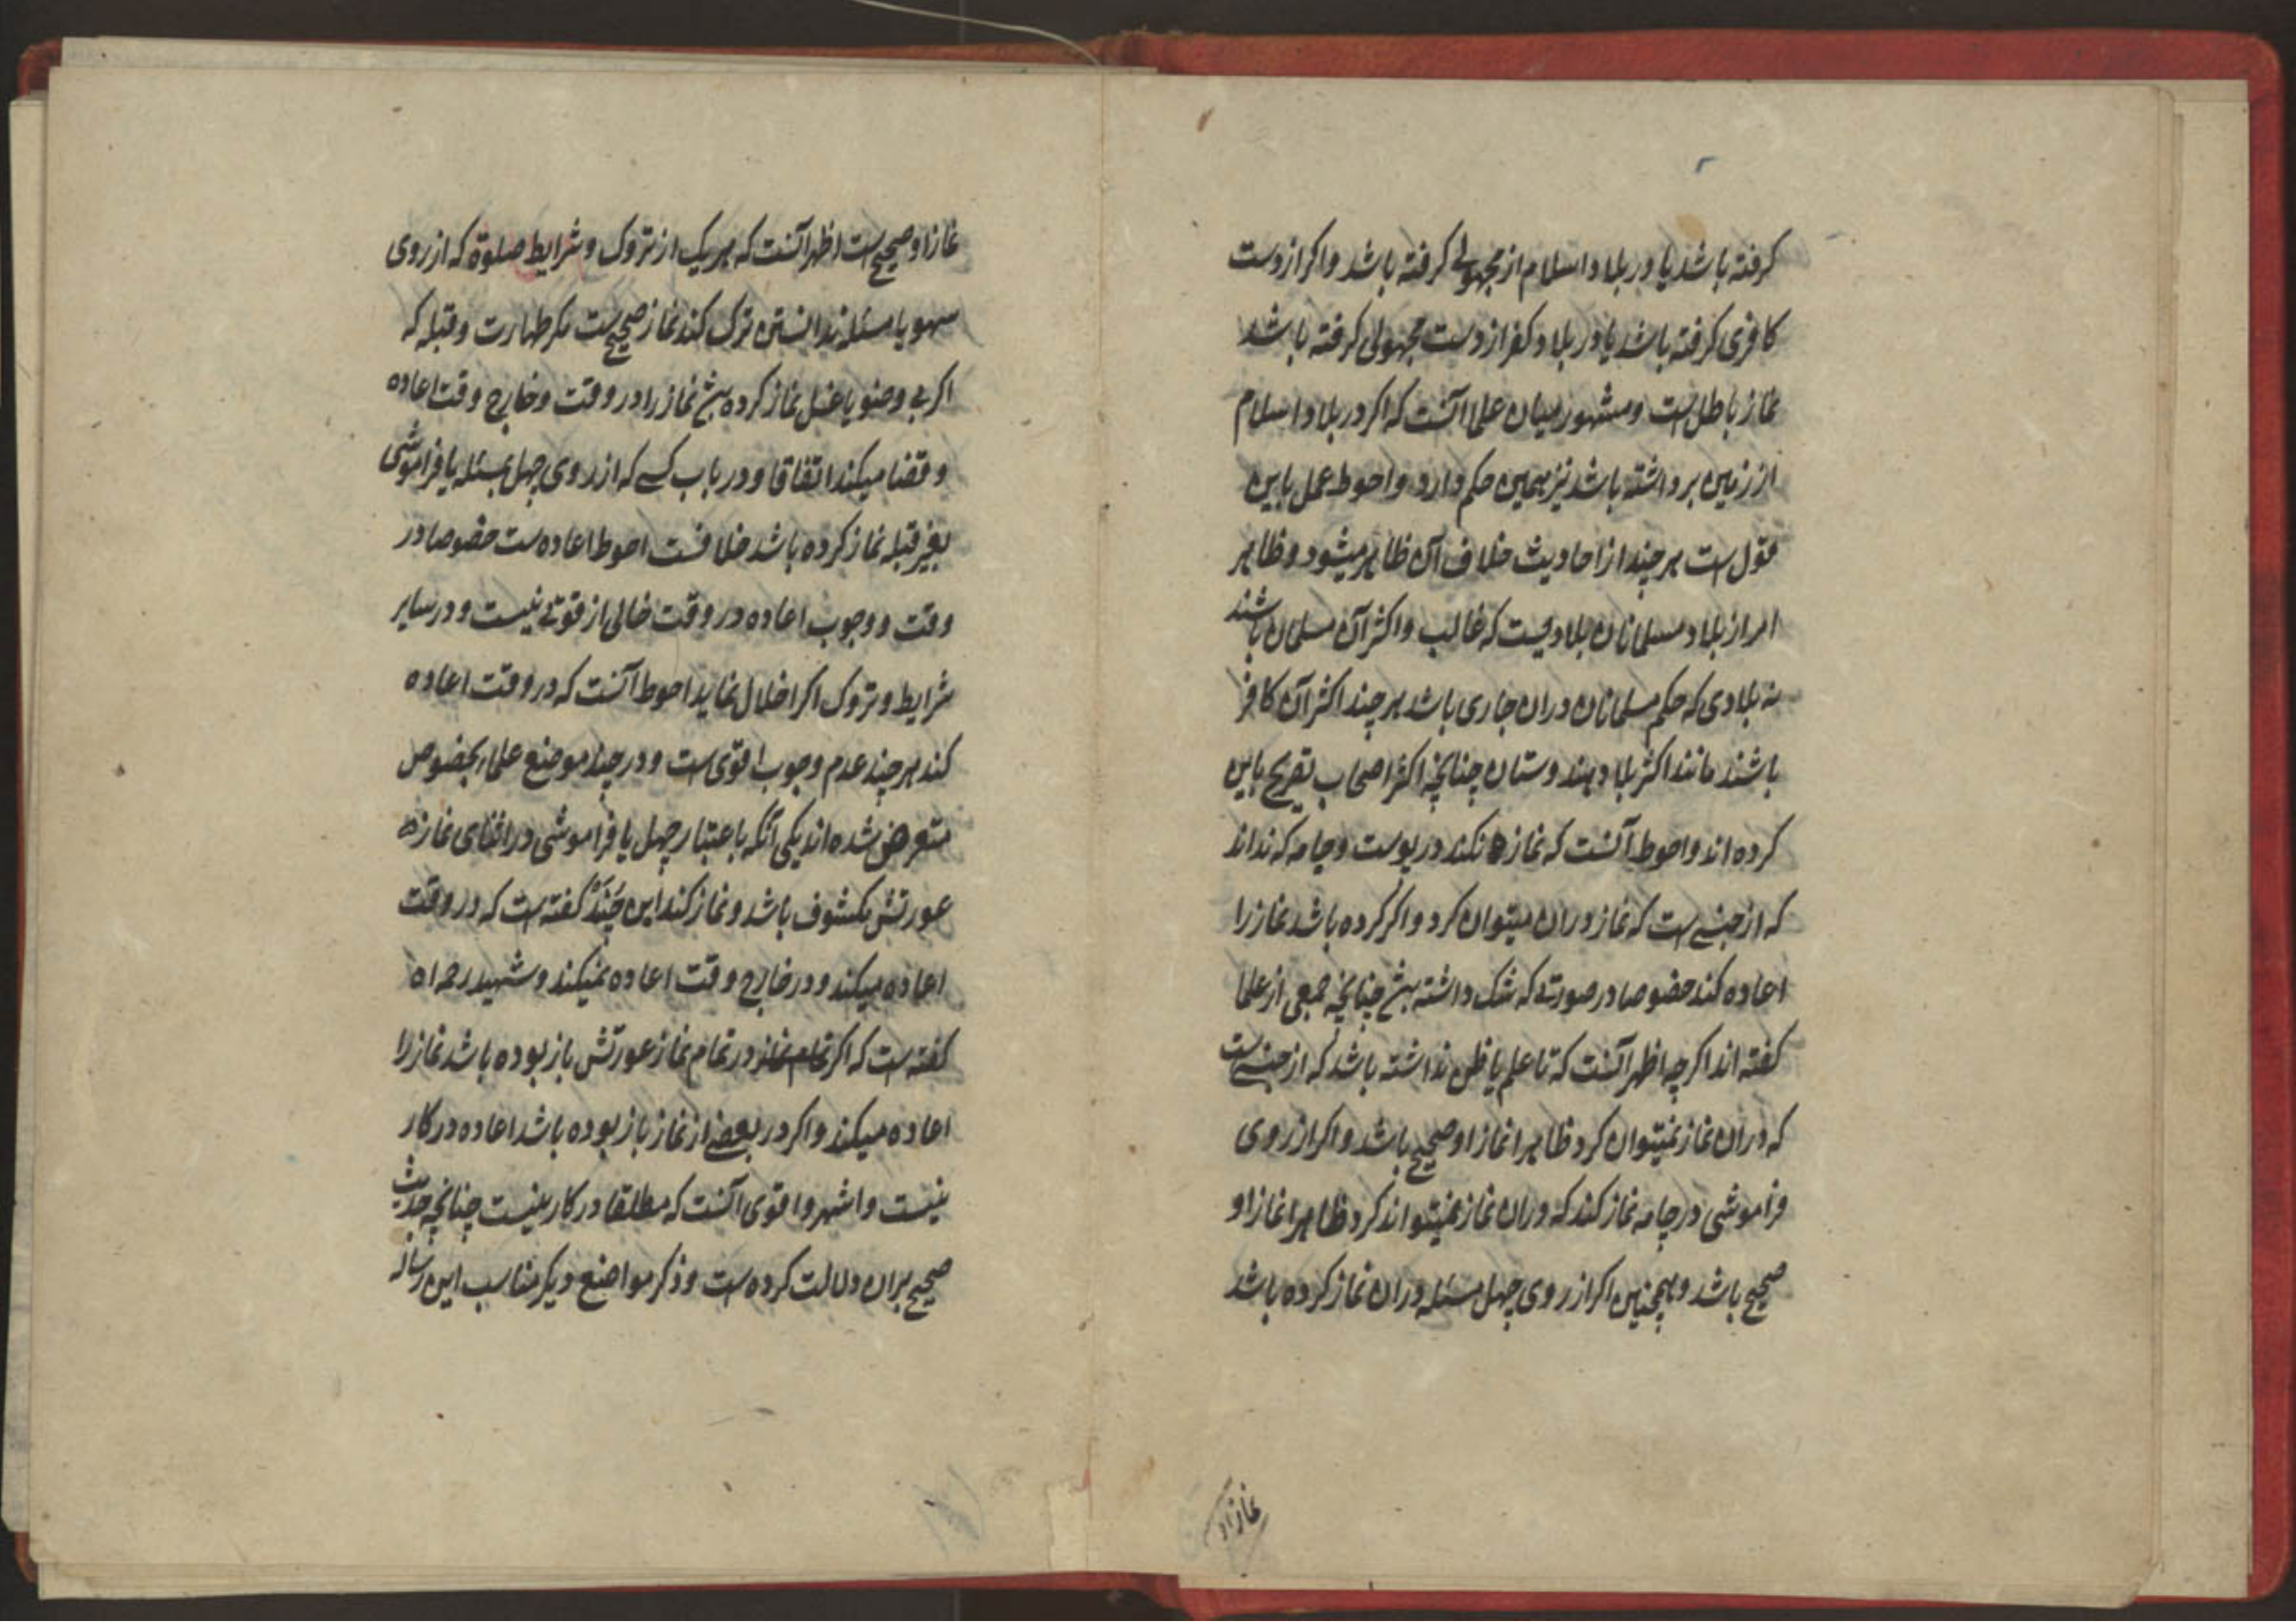 کرفته باشد یا در بلاد اسلام از مجهولی کرفته باشد و اکر از دست
کافری کرفته باشد یا در بلاد کفر از دست مجهولی کرفته باشد
نماز باطل است و مشهور میان علما آنست که اکر در بلاد اسلام
از زمین برداشته باشد نیز همین حکم دارد و احوط عمل باین
قول است هر چند از احادیث خلاف آن ظاهر میشود و ظاهر
امر از بلاد مسلمانان بلادیست که غالب و اکثر آن مسلمان باشند
نه بلادی که حکم مسلمانان دران جاری باشد هر چند اکثر آن کافر
باشند مانند اکثر بلاد هندوستان چنانچه اکثر اصحاب تصریح باین
کرده اند و احوط آنست که نماز نکند در پوست و جامه که نداند
که از جنسی است که نماز دران میتوان کرد و اکر کرده باشد نماز را
اعاده کند خصوصا در صورتی که شک داشته باشد چنانچه جمعی از علما
کفته اند اکر چه اظهر آنست که تا علم یا ظن نداشته باشد که از جنسی است
که دران نماز نمیتوان کرد ظاهرا نماز او صحیح باشد و اکر از روی
فراموشی در جامه نماز کند که دران نماز نمیتواند کرد ظاهرا نماز او
صحیح باشد و همچنین اکر از روی جهل مسئله دران نماز کرده باشد
نماز او
نماز او صحیح است اظهر آنست که هر یک از تروک و شرایط صلوة که از روی
سهو یا مسئله ندانستن ترک کند نماز صحیح است مکر طهارت و قبله که
اکر بی وضو یا غسل نماز کرده باشد نماز را در وقت و خارج وقت اعاده
و قضا میکند اتفاقا و در باب کسی که از روی جهل بمسئله یا فراموشی
بغیر قبله نماز کرده باشد خلافست احوط اعاده است خصوصا در
وقت و وجوب اعاده در وقت خالی از قوتی نیست و در سایر
شرایط و تروک اکر اخلال نماید احوط آنست که در وقت اعاده
کند هر چند عدم وجوب اقوی است و در چند موضع علماء بخصوص
متعرض شده اند یکی آنکه باعتبار جهل یا فراموشی در اثنای نماز
عورتش مکشوف باشد و نماز کند ابن جنید کفته است که در وقت
اعاده میکند و در خارج وقت اعاده نمیکند و شهید رحمه اه
کفته است که اکر تمام نماز در تمام نماز عورتش باز بوده باشد نماز را
اعاده میکند و اکر در بعضی از نماز باز بوده باشد اعاده در کار
نیست و اشهر و اقوی آنست که مطلقا در کار نیست چنانچه حدیث
صحیح بران دلالت کرده است و ذکر مواضع دیکر مناسب این رساله